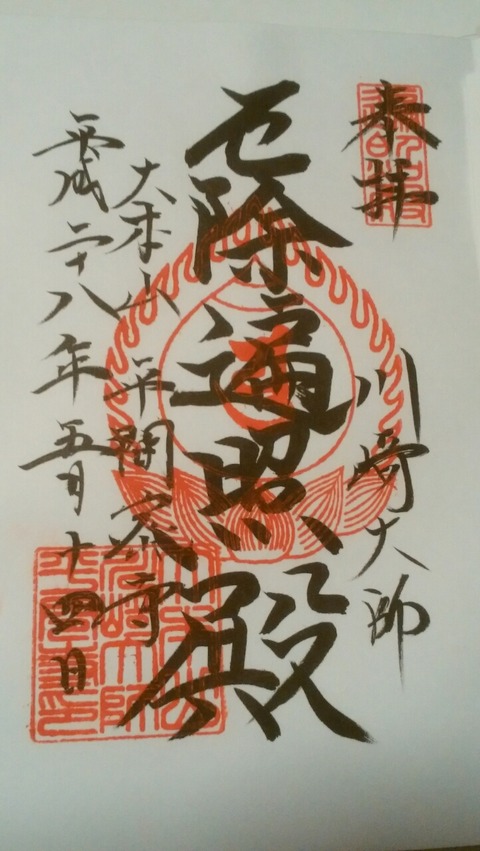 奉拝
川崎大師
厄除遍照殿
大本山 平間寺
平成二十八年五月十四日